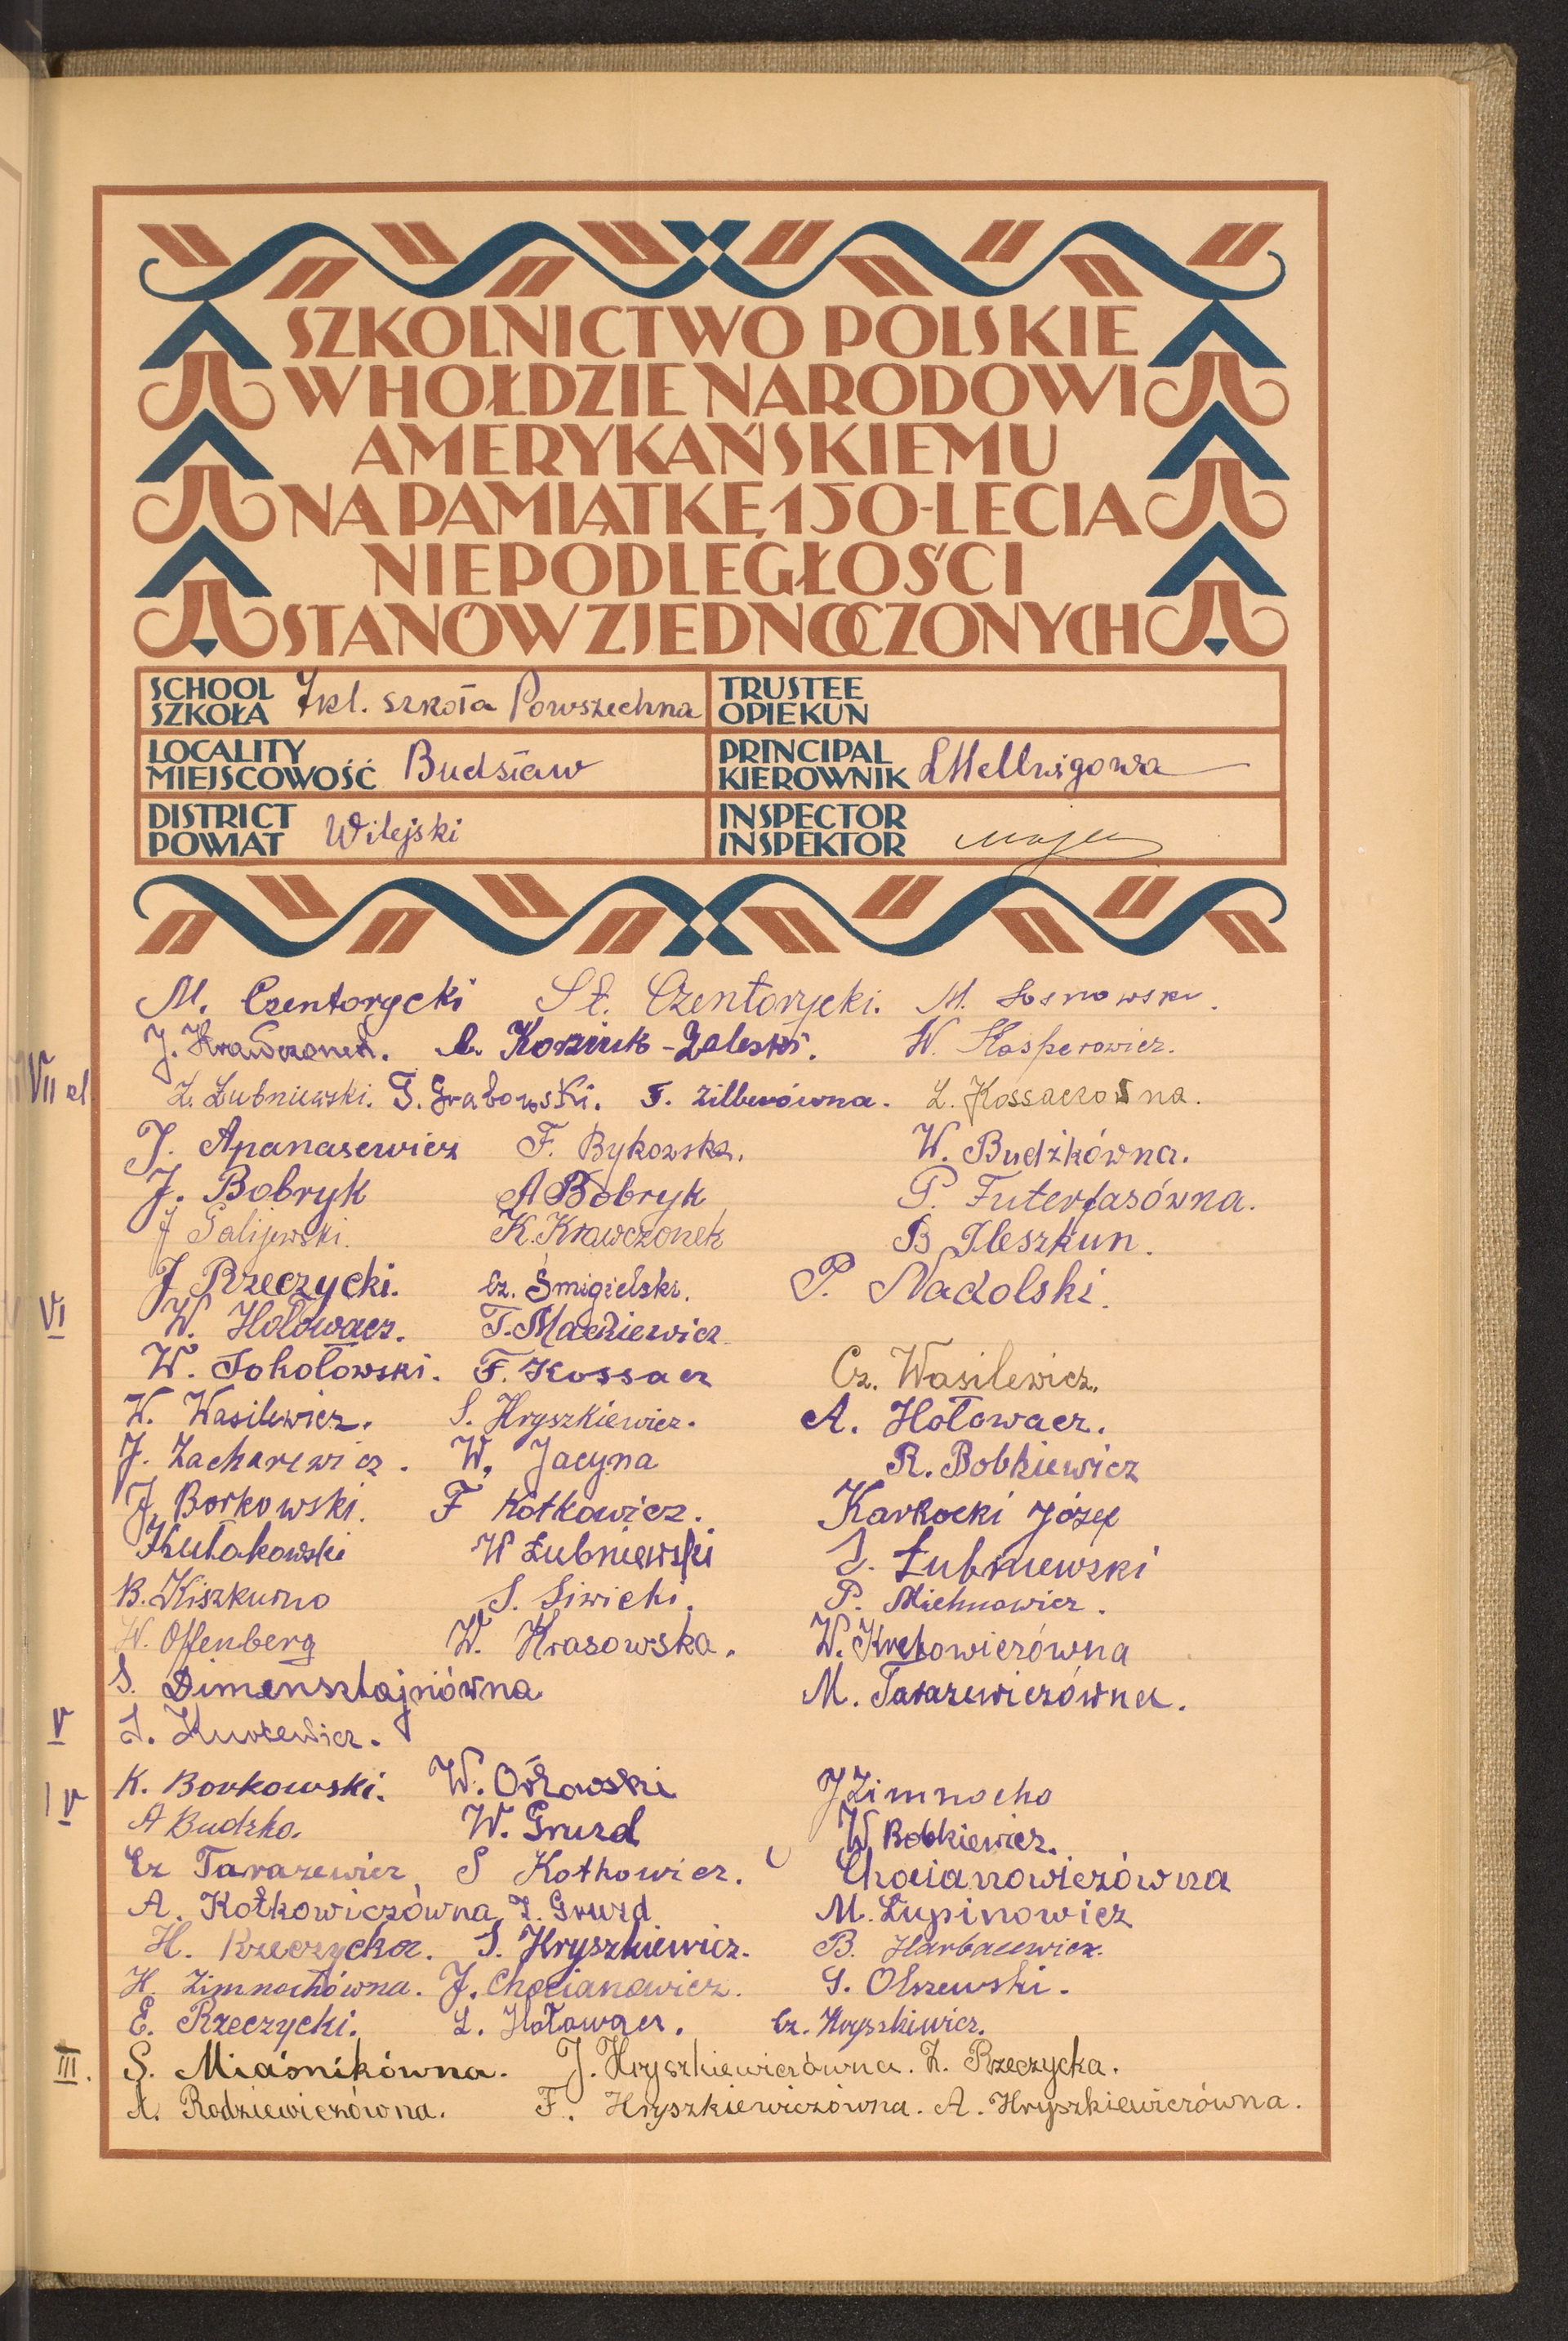 SZKOLNICTWO POLSKIE
W HOŁDZIE NARODOWI
AMERYKAŃSKIEMU
NA PAMIĄTKĘ 150-LECIA
NIEPODLEGŁOŚCI
STANÓW ZJEDNOCZONYCH
SCHOOL SZKOŁA 7kl. szkoła Powszechna
TRUSTEE OPIEKUN
LOCALITY MIEJSCOWOŚĆ Budsław
PRINCIPAL KIEROWNIK
DISTRICT POWIAT Wilejski
INSPECTOR INSPEKTOR
M. Czentorycki St. Czentorycki. M. Sosnowski.
J. Krawczonek. A. Korziuk-Zaleski. W. Kasperowicz.
VII
Z. Łubniewski. T. Grabowski. F. Zilberówna. L. Kossaczowna.
J. Apanasewicz F. Bykowska. W. Budźkówna.
J. Bobryk A Bobryk P. Futerfasówna.
J Galijewski. K. Krawczonek B Pleszkun.
J Rzeczycki. Cz. Śmigielski. P. Nadolski.
VI
W. Hołowacz. T. Mackiewicz
W. Sokołowski. F. Kossacz Cz. Wasilewicz.
W. Wasilewicz. S. Hryszkiewicz. A. Hołowacz.
J. Zacharewicz. W. Jacyna R. Bobkiewicz
J. Borkowski. F Kotkowicz. Karkocki Józef
Kułakowski W Łubniewski S. Łubniewski
B. Kiszkurno S. Siwicki. P. Michnowicz.
W. Offenberg W. Krasowska. W. Krełowiczówna
S. Dimensztajnówna M. Tarazewiczówna.
V
S. Kurzewicz.
K. Borkowski. W. Orłowski J Zimnocho
IV
A Budzko. W. Gruzd W Bobkiewicz.
Cz Tarazewicz, S Kotkowicz. Chocianowiczówna
A. Kotkowiczówna, Z. Gruzd M. Łupinowicz
H. Rzeczycka. S. Hryszkiewicz. B. Harbacewicz.
H. Zimnochówna. J. Chocianowicz. S. Olszewski.
E. Rzeczycki. L. Hołowacz. Cz. Hryszkiewicz.
III. S. Miaśnikówna. J. Hryszkiewiczówna. Z. Rzeczycka.
A. Rodziewiczówna. F. Hryszkiewiczówna. A. Hryszkiewiczówna.